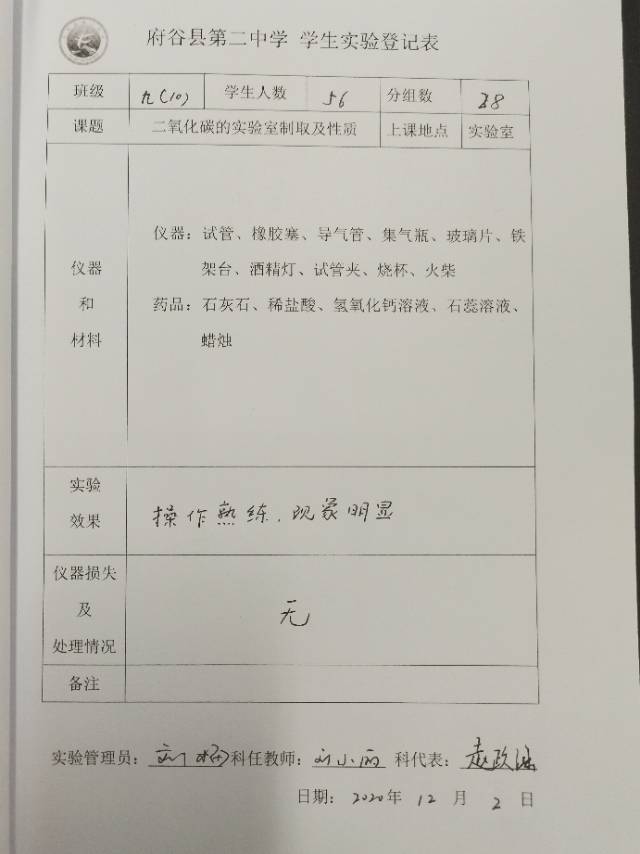 府谷县第二中学 学生实验登记表
班级 九(10) 学生人数 56 分组数 28
课题 二氧化碳的实验室制取及性质 上课地点 实验室
仪器和材料
仪器：试管、橡胶塞、导气管、集气瓶、玻璃片、铁
架台、酒精灯、试管夹、烧杯、火柴
药品：石灰石、稀盐酸、氢氧化钙溶液、石蕊溶液、
蜡烛
实验
效果
操作熟练，现象明显
仪器损失
及
处理情况
无
备注
实验管理员：刘 科任教师：刘小丽 科代表：赵
日期：2020年 12 月 2 日